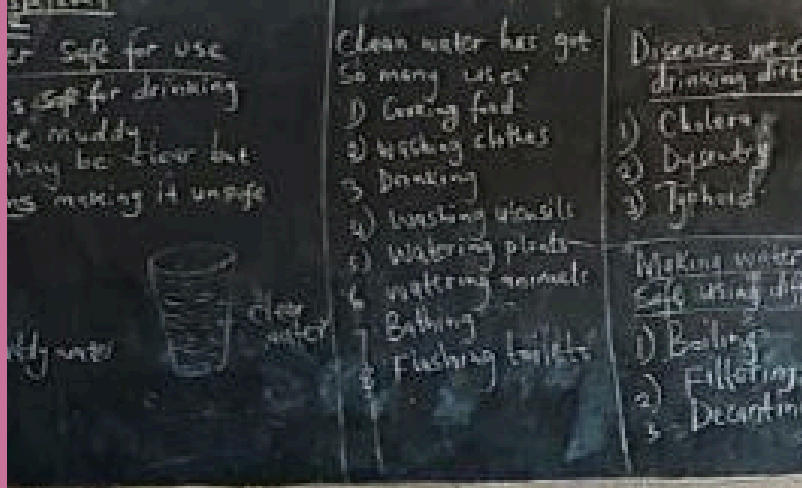 er safe for use
s safe for drinking
be muddy.
may be clear but
ns making it unsafe
clear
water
ddy water
Clean water has got
So many uses
1) Cooking food
2) washing clothes
3 Drinking
4) Washing utensils
5) Watering plants
6 watering animals
7 Bathing
8 Flushing toilets
Diseases we c
drinking dirt
1) Cholera
2) Dysentry
3) Typhoid
Making water
Safe using diff
1) Boiling
2) Filtering
3 Decantin